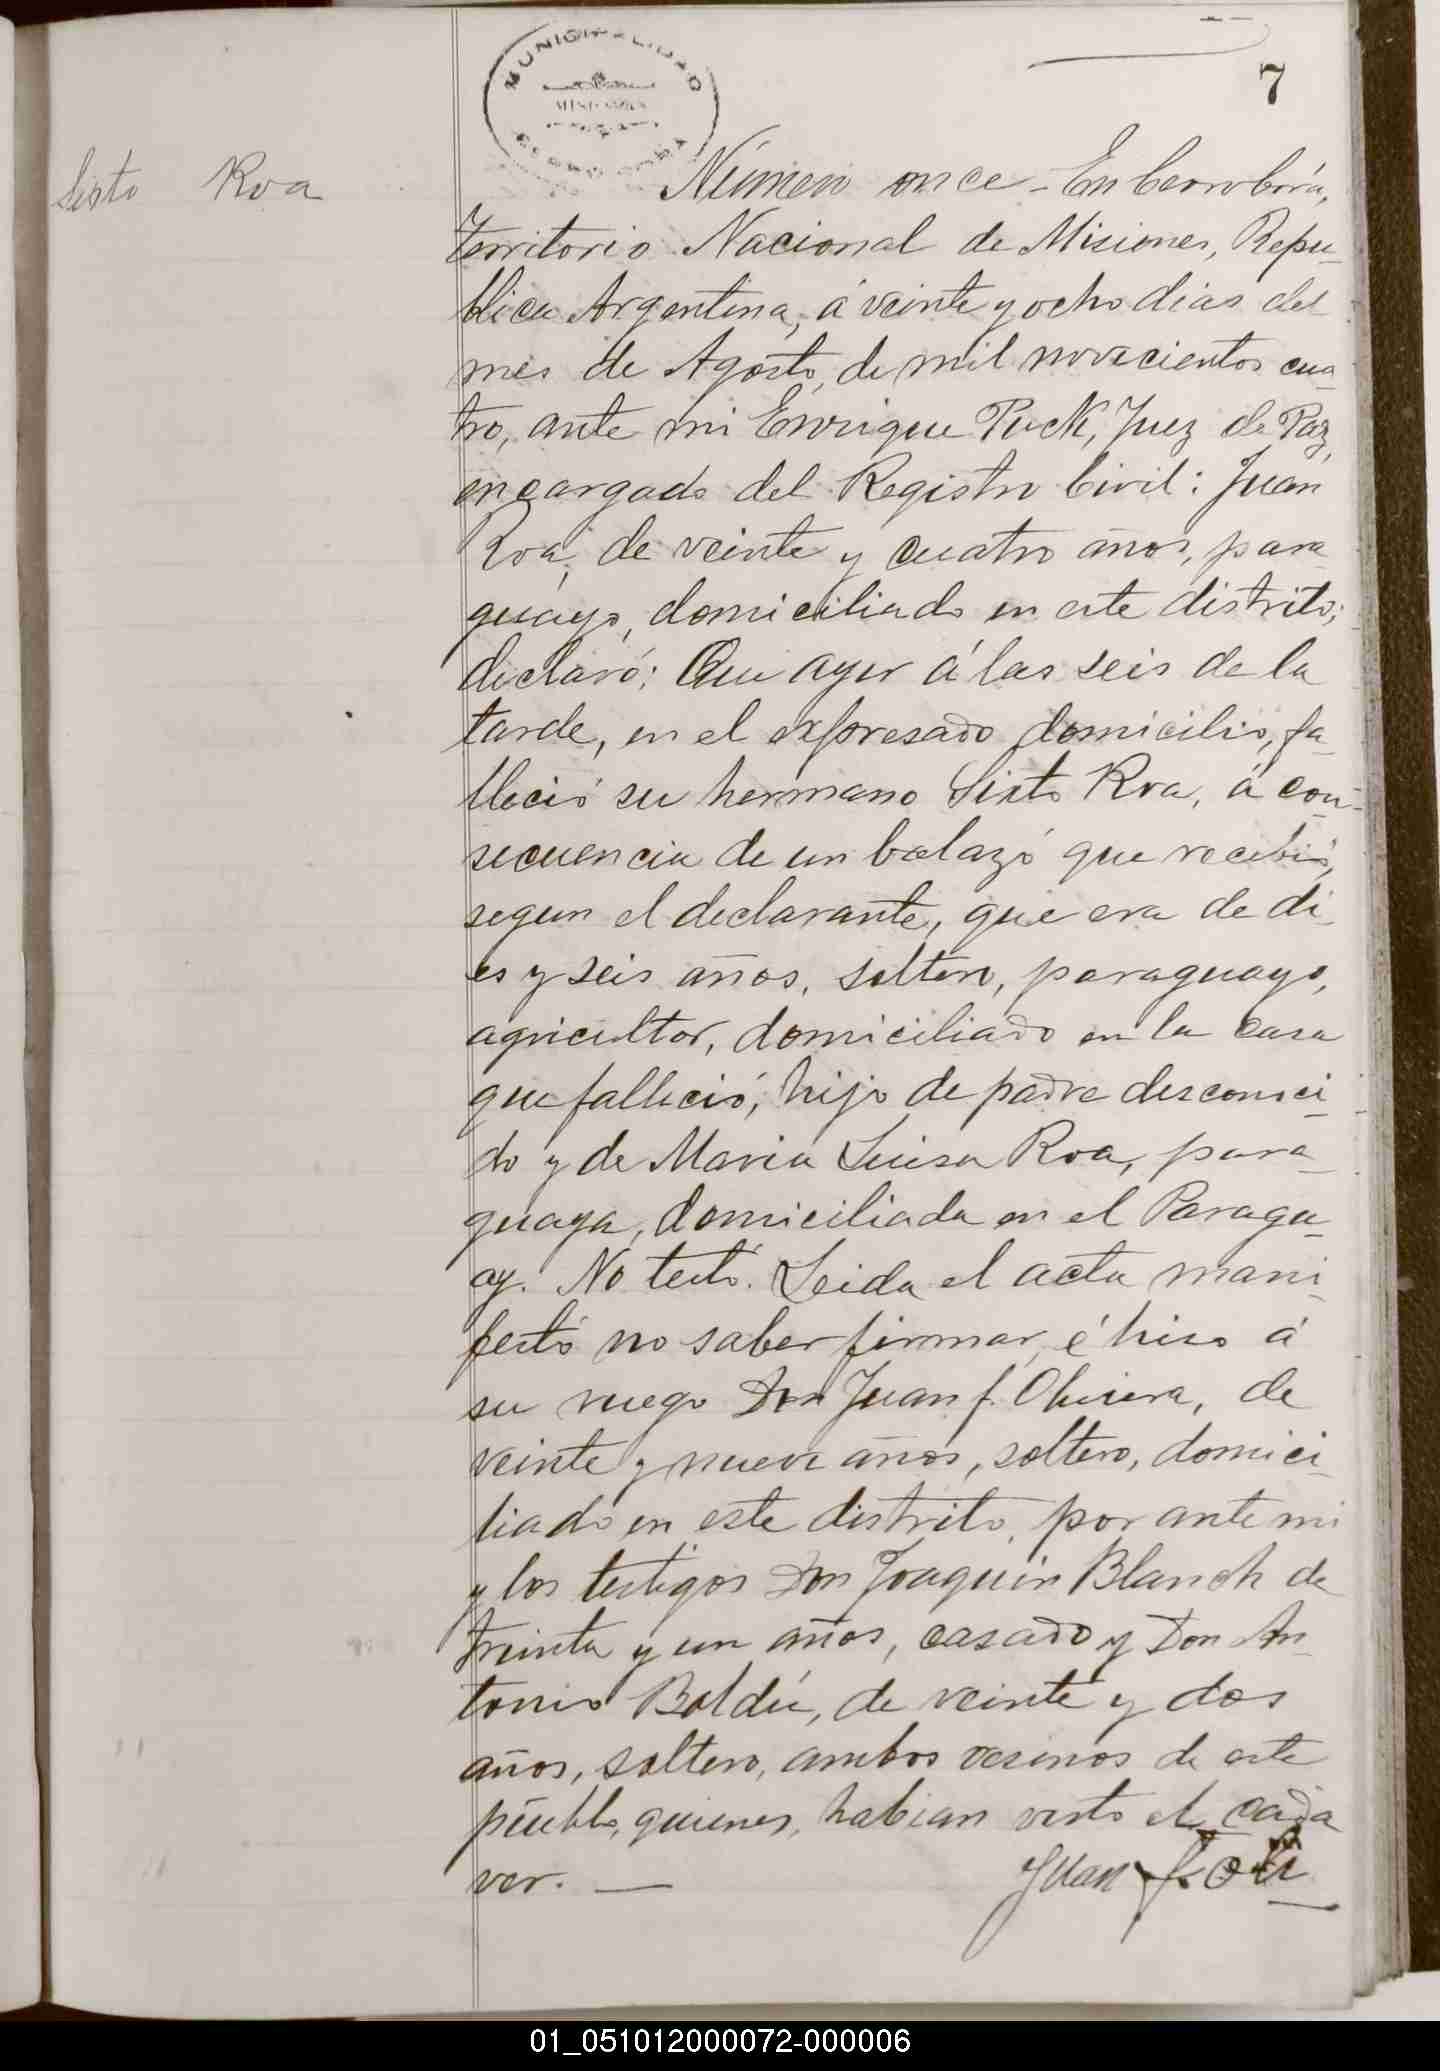 MUNICIPALIDAD
MISIONES
7
Sixto Roa
Número once - En Cerro Corá,
Territorio Nacional de Misiones, Repu-
blica Argentina, á veinte y ocho dias del
mes de Agosto, de mil novecientos cua-
tro, ante mi Enrique Puck, Juez de Paz,
encargado del Registro Civil: Juan
Roa, de veinte y cuatro años, para-
guayo, domiciliado en este distrito;
declaró: Que ayer á las seis de la
tarde, en el expresado domicilio, fa-
lleció su hermano Sixto Roa, á con-
secuencia de un balazo que recibió,
segun el declarante, que era de di-
es y seis años, soltero, paraguayo,
agricultor, domiciliado en la casa
que falleció, hijo de padre desconoci-
do y de Maria Luisa Roa, para-
guaya, domiciliada en el Paragu-
ay. No testó. Leida el acta mani-
festó no saber firmar, é hiso á
su ruego Don Juan J. Olivera, de
veinte y nueve años, soltero, domici-
liado en este distrito, por ante mi
y los testigos Don Joaquin Blanch de
treinta y un años, casado y Don An-
tonio Boldú, de veinte y dos
años, soltero, ambos vesinos de este
pueblo, quienes, habian visto el cada
ver. —
Juan J. Oli
01_051012000072-000006